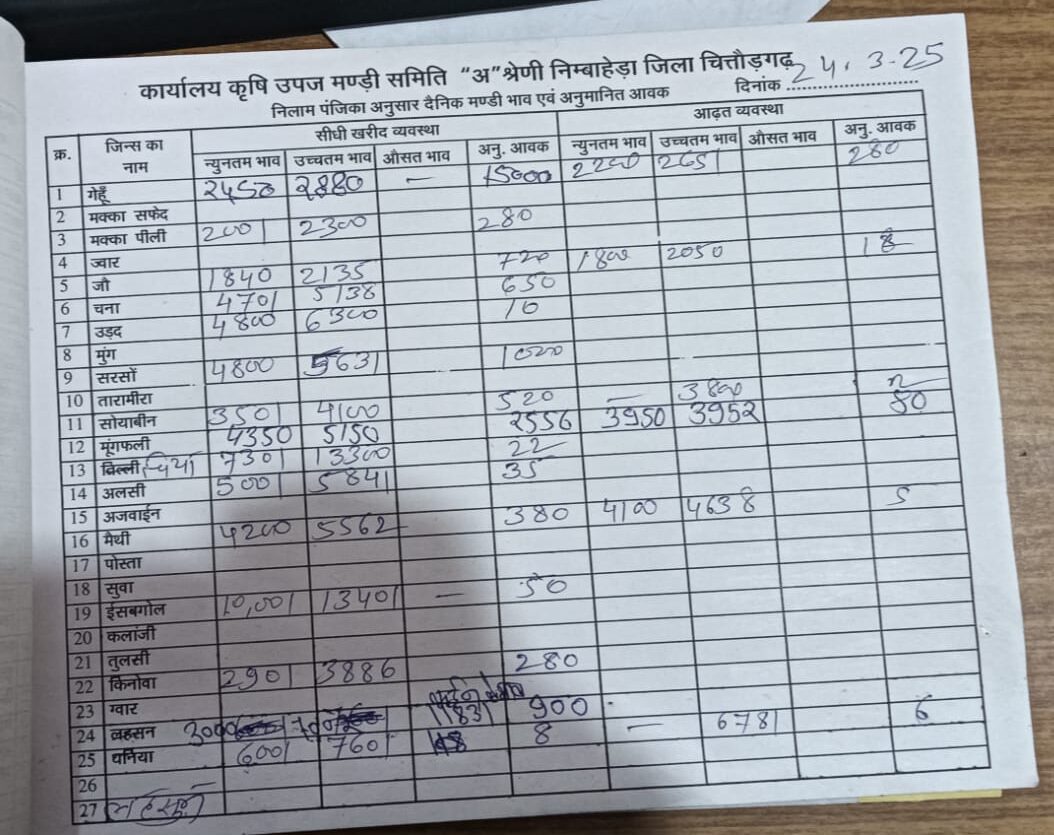 कार्यालय कृषि उपज मण्डी समिति "अ" श्रेणी निम्बाहेड़ा जिला चित्तौड़गढ़
निलाम पंजिका अनुसार दैनिक मण्डी भाव एवं अनुमानित आवक दिनांक 24.3.25
क्र. जिन्स का नाम सीधी खरीद व्यवस्था आढ़त व्यवस्था
न्युनतम भाव उच्चतम भाव औसत भाव अनु. आवक न्युनतम भाव उच्चतम भाव औसत भाव अनु. आवक
1 गेहूँ 2450 2880 — 15000 2200 2651 280
2 मक्का सफेद
3 मक्का पीली 2001 2300 280
4 ज्वार
5 जौ 1840 2135 720 1800 2050 18
6 चना 4701 5138 650
7 उड़द 4800 6300 10
8 मुंग
9 सरसों 4800 5631 1020
10 तारामीरा
11 सोयाबीन 3501 4100 520 — 3800
12 मूंगफली 4350 5150 2556 3950 3952 50
13 चियां 7301 13300 22
14 अलसी 5001 5841 35
15 अजवाईन
16 मैथी 4200 5562 380 4100 4638 5
17 पोस्ता
18 सुवा
19 ईसबगोल 10,001 13401 — 50
20 कलांजी
21 तुलसी
22 किनोवा 2901 3886 280
23 ग्वार
24 लहसन 3000 11831 900 — 6781 6
25 धनिया 6001 7601 8
26
27 लहसुन